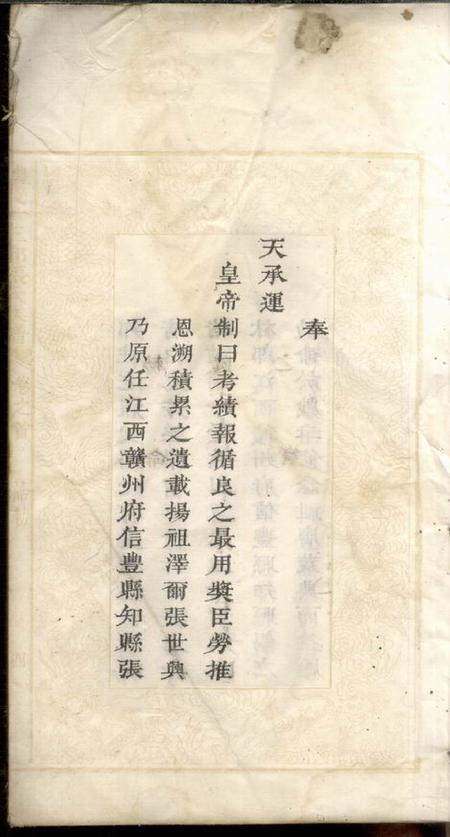 奉
天承運
皇帝制曰考績報循良之最用奬臣勞推
恩溯積累之遺載揚祖澤爾張世興
乃原任江西贛州府信豐縣知縣張